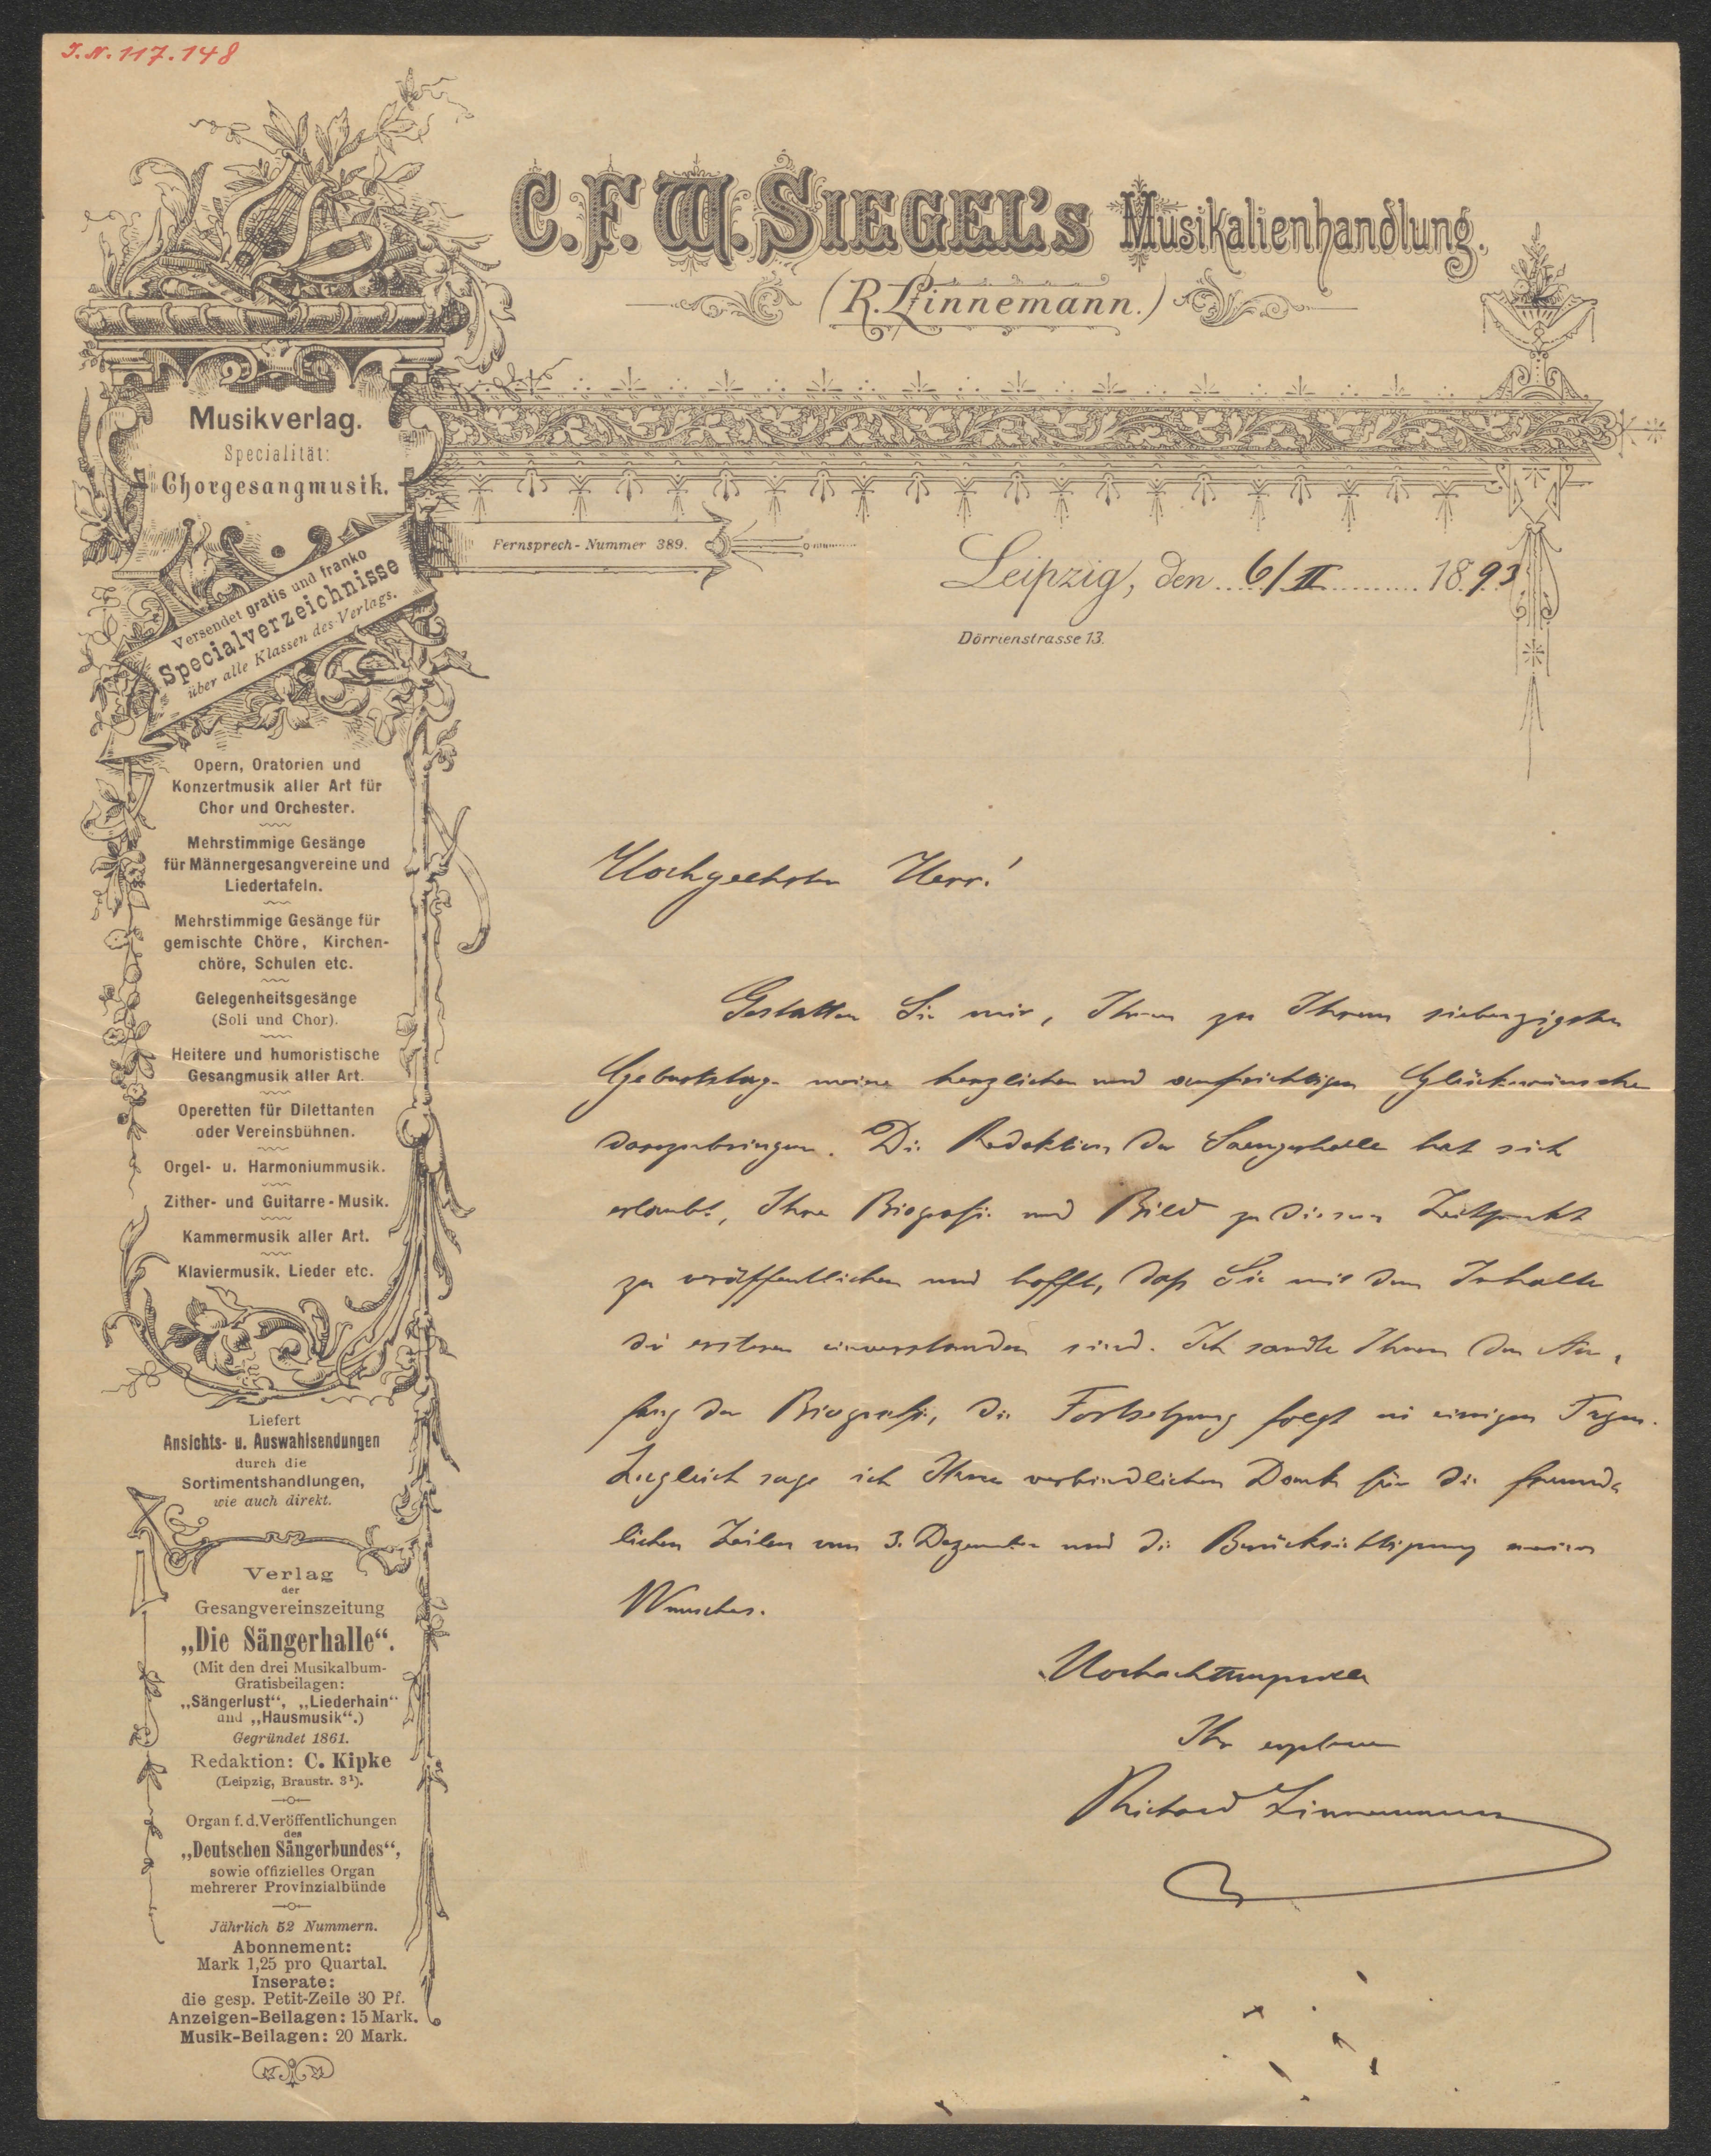 I.N. 117.148
C.F.W. SIEGEL's Musikalienhandlung.
(R. Linnemann.)
Musikverlag.
Specialität:
Chorgesangmusik.
Versendet gratis und franko
Specialverzeichnisse
über alle Klassen des Verlags.
Fernsprech-Nummer 389.
Leipzig, den 6/II 1893
Dörrienstrasse 13.
Opern, Oratorien und
Konzertmusik aller Art für
Chor und Orchester.
Mehrstimmige Gesänge
für Männergesangvereine und
Liedertafeln.
Mehrstimmige Gesänge für
gemischte Chöre, Kirchen-
chöre, Schulen etc.
Gelegenheitsgesänge
(Soli und Chor).
Heitere und humoristische
Gesangmusik aller Art.
Operetten für Dilettanten
oder Vereinsbühnen.
Orgel- u. Harmoniummusik.
Zither- und Guitarre-Musik.
Kammermusik aller Art.
Klaviermusik, Lieder etc.
Liefert
Ansichts- u. Auswahlsendungen
durch die
Sortimentshandlungen,
wie auch direkt.
Verlag
der
Gesangvereinszeitung
„Die Sängerhalle“.
(Mit den drei Musikalbum-
Gratisbeilagen:
„Sängerlust“, „Liederhain“
und „Hausmusik“.)
Gegründet 1861.
Redaktion: C. Kipke
(Leipzig, Braustr. 3¹).
Organ f. d. Veröffentlichungen
des
„Deutschen Sängerbundes“,
sowie offizielles Organ
mehrerer Provinzialbünde
Jährlich 52 Nummern.
Abonnement:
Mark 1,25 pro Quartal.
Inserate:
die gesp. Petit-Zeile 30 Pf.
Anzeigen-Beilagen: 15 Mark.
Musik-Beilagen: 20 Mark.
Hochgeehrter Herr!
Gestatten Sie mir, Ihnen zu Ihrem siebenzigsten
Geburtstage meine herzlichen und aufrichtigen Glückwünsche
darzubringen. Die Redaktion der Saengerhalle hat sich
erlaubt, Ihre Biografie und Bild zu diesem Zeitpunkt
zu veröffentlichen und hofft, daß Sie mit dem Inhalte
der ersteren einverstanden sind. Ich sandte Ihnen den An-
fang der Biografie, die Fortsetzung folgt in einigen Tagen.
Zugleich sage ich Ihnen verbindlichen Dank für die freund-
lichen Zeilen vom 3. Dezember und die Berücksichtigung meines
Wunsches.
Hochachtungsvoll
Ihr ergebener
Richard Linnemann